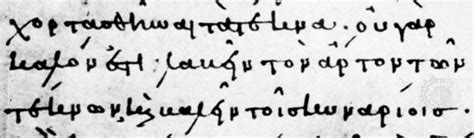 χορτασθῆναι τὰ τέκνα· οὐ γὰρ
καλόν ἐστι· λαβεῖν τὸν ἄρτον τῶν
τέκνων, καὶ βαλεῖν τοῖς κυναρίοις